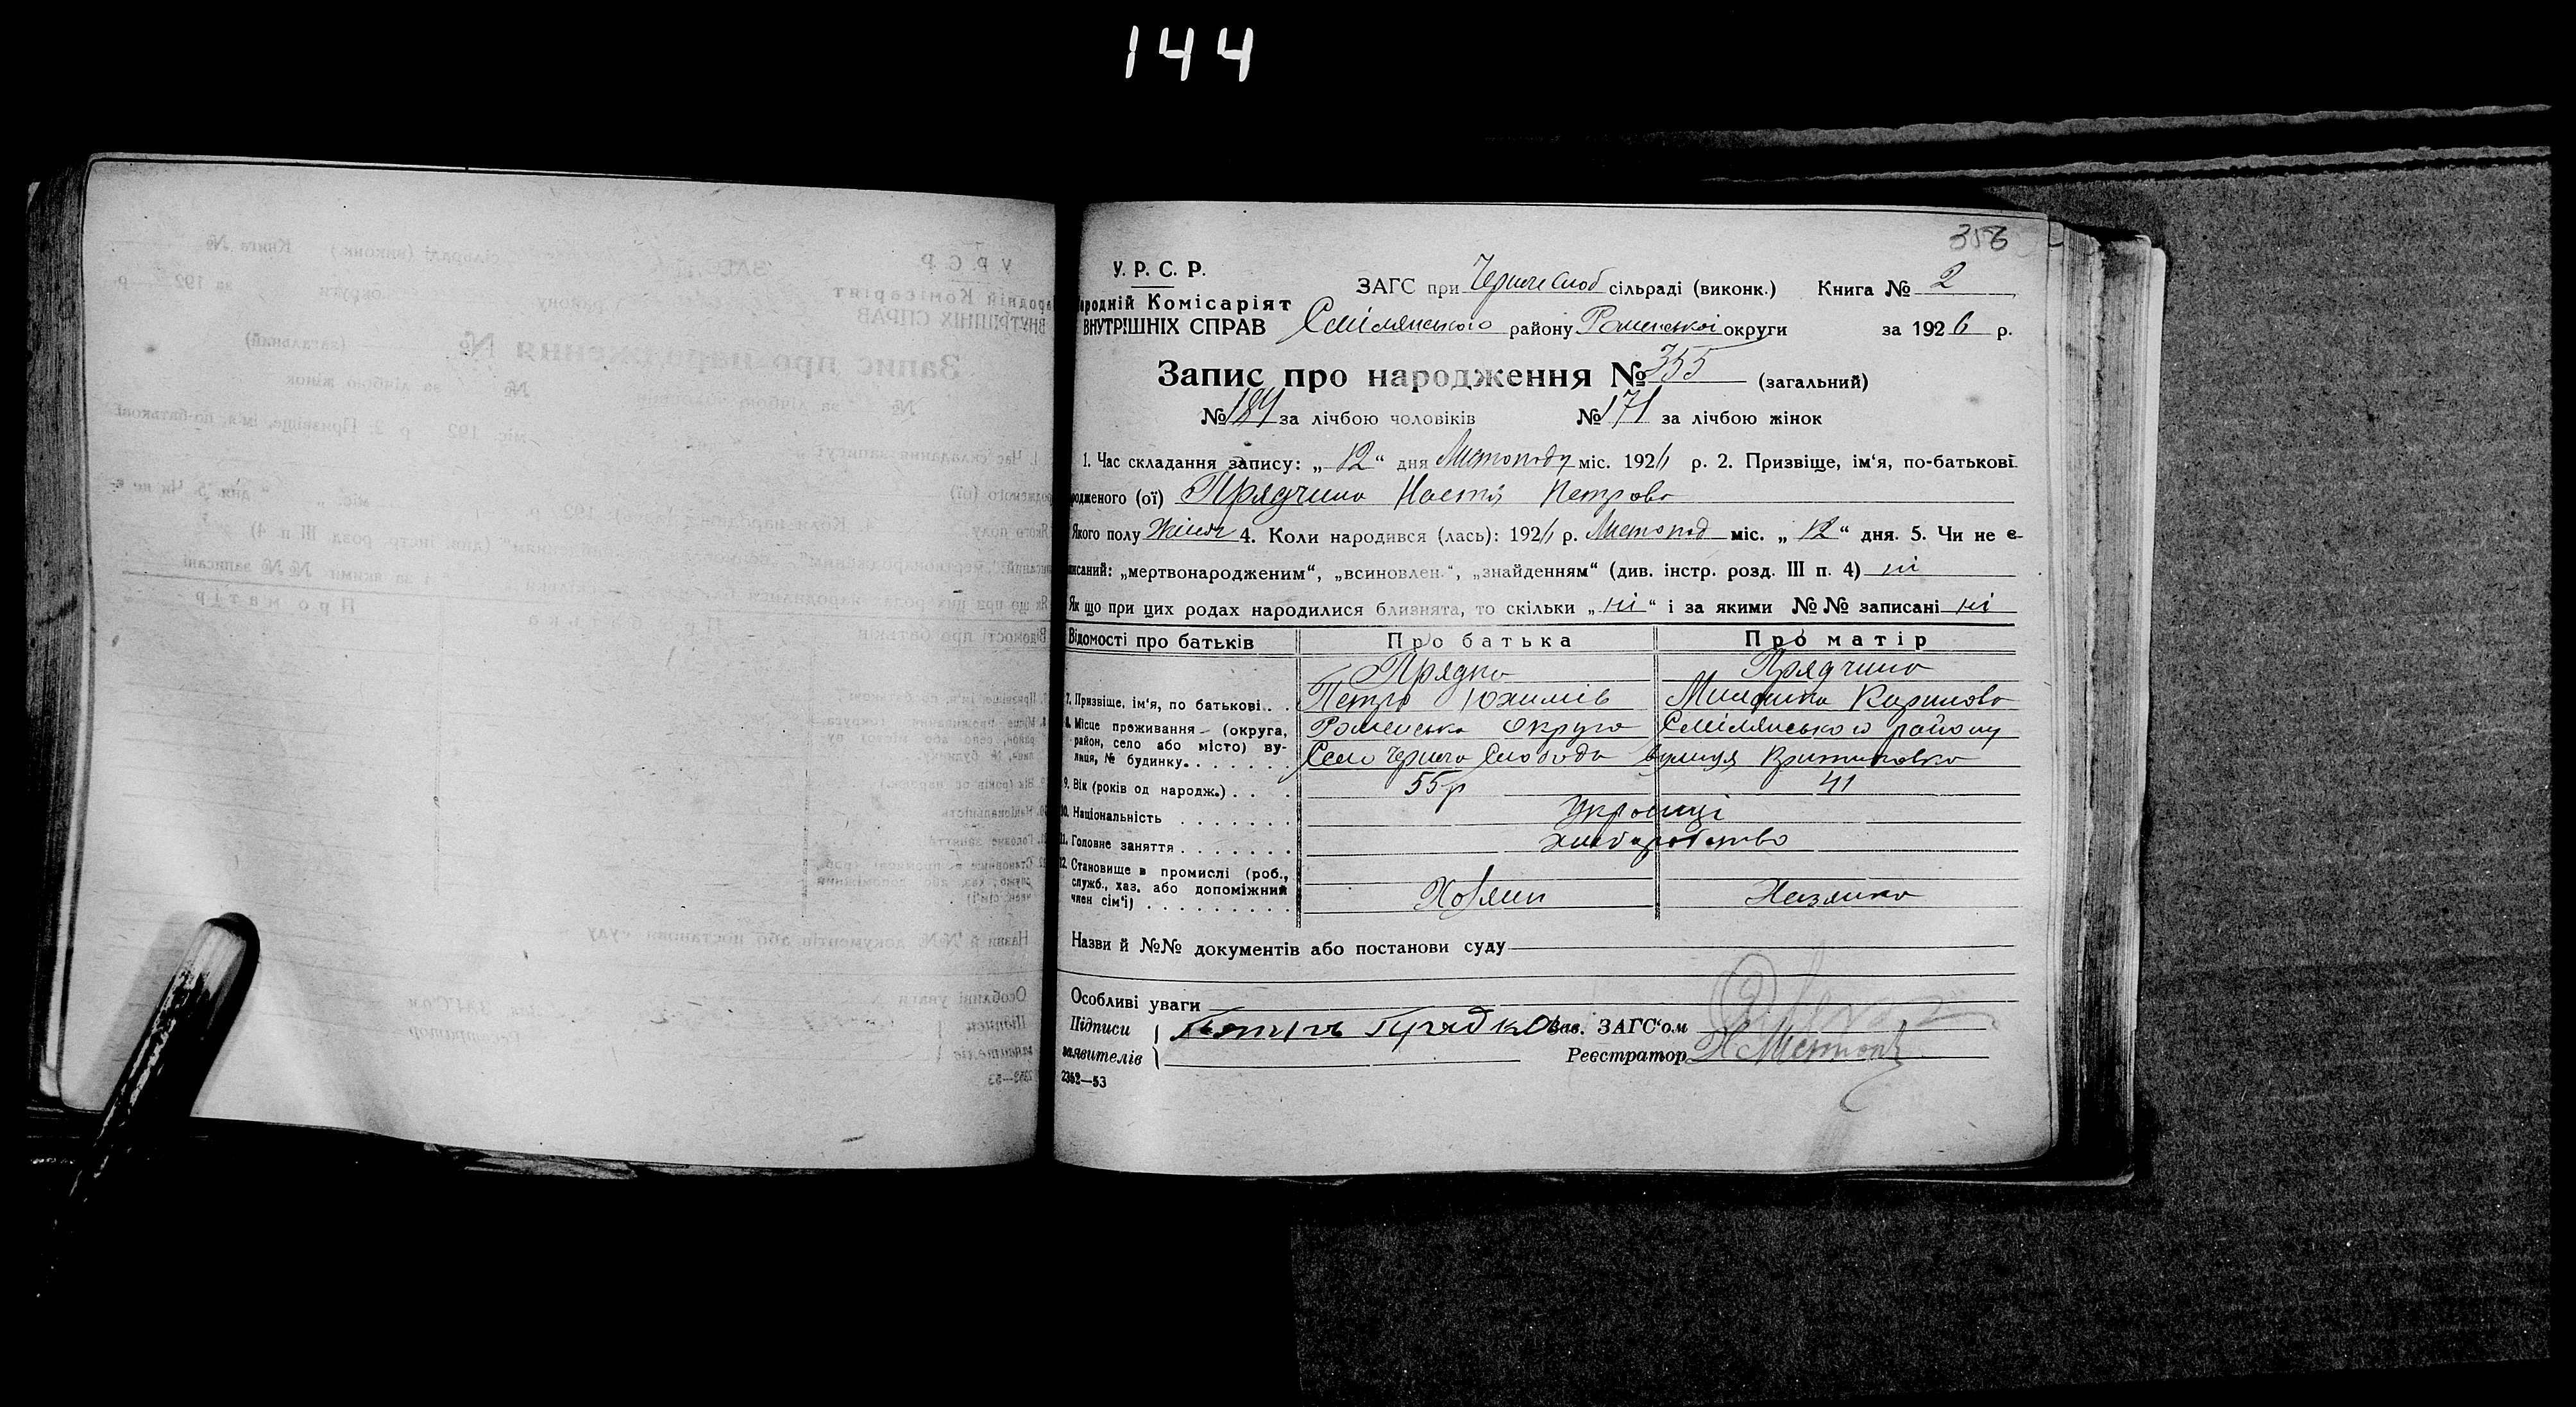 144
356
У. Р. С. Р.
ЗАГС при Черне Слоб сільраді (виконк.) Книга № 2
ародній Комісаріят
ВНУТРІШНІХ СПРАВ Смілянського району Роменської округи за 1926 р.
Запис про народження № 355 (загальний)
№ 184 за лічбою чоловіків № 171 за лічбою жінок
1. Час складання запису: „ 12 “ дня Листопаду міс. 1926 р. 2. Призвіще, ім‘я, по-батькові
родженого (ої) Прядчина Настя Петрова
Якого полу Жіноч 4. Коли народився (лась): 1926 р. Листопад міс. „ 12 “ дня. 5. Чи не є
писаний: „мертвонародженим“, „всиновлен.“, „знайденням“ (див. інстр. розд. III п. 4) ні
Як що при цих родах народилися близнята, то скільки „ ні “ і за якими №№ записані ні
Відомості про батьків Про батька Про матір
Прядко Прядчина
7. Призвіще, ім‘я, по батькові . . Петро Юхимів Кирилова
8. Місце проживання (округа, Роменська Округа Смілянського району
район, село або місто) ву- Село Черна Слобода вулиця
лиця, № будинку. . . . . . .
9. Вік (років од народж.) . . . 55 р 41
10. Національність . . . . . . . Українці
11. Головне заняття . . . . . . . хліборобство
12. Становище в промислі (роб.,
служб., хаз. або допоміжний Хозяин Хазяйка
член сім‘ї) . . . . . . . . .
Назви й №№ документів або постанови суду
Особливі уваги
Підписи Петръ Прядко Зав. ЗАГС‘ом
заявителів Реєстратор
2352—53